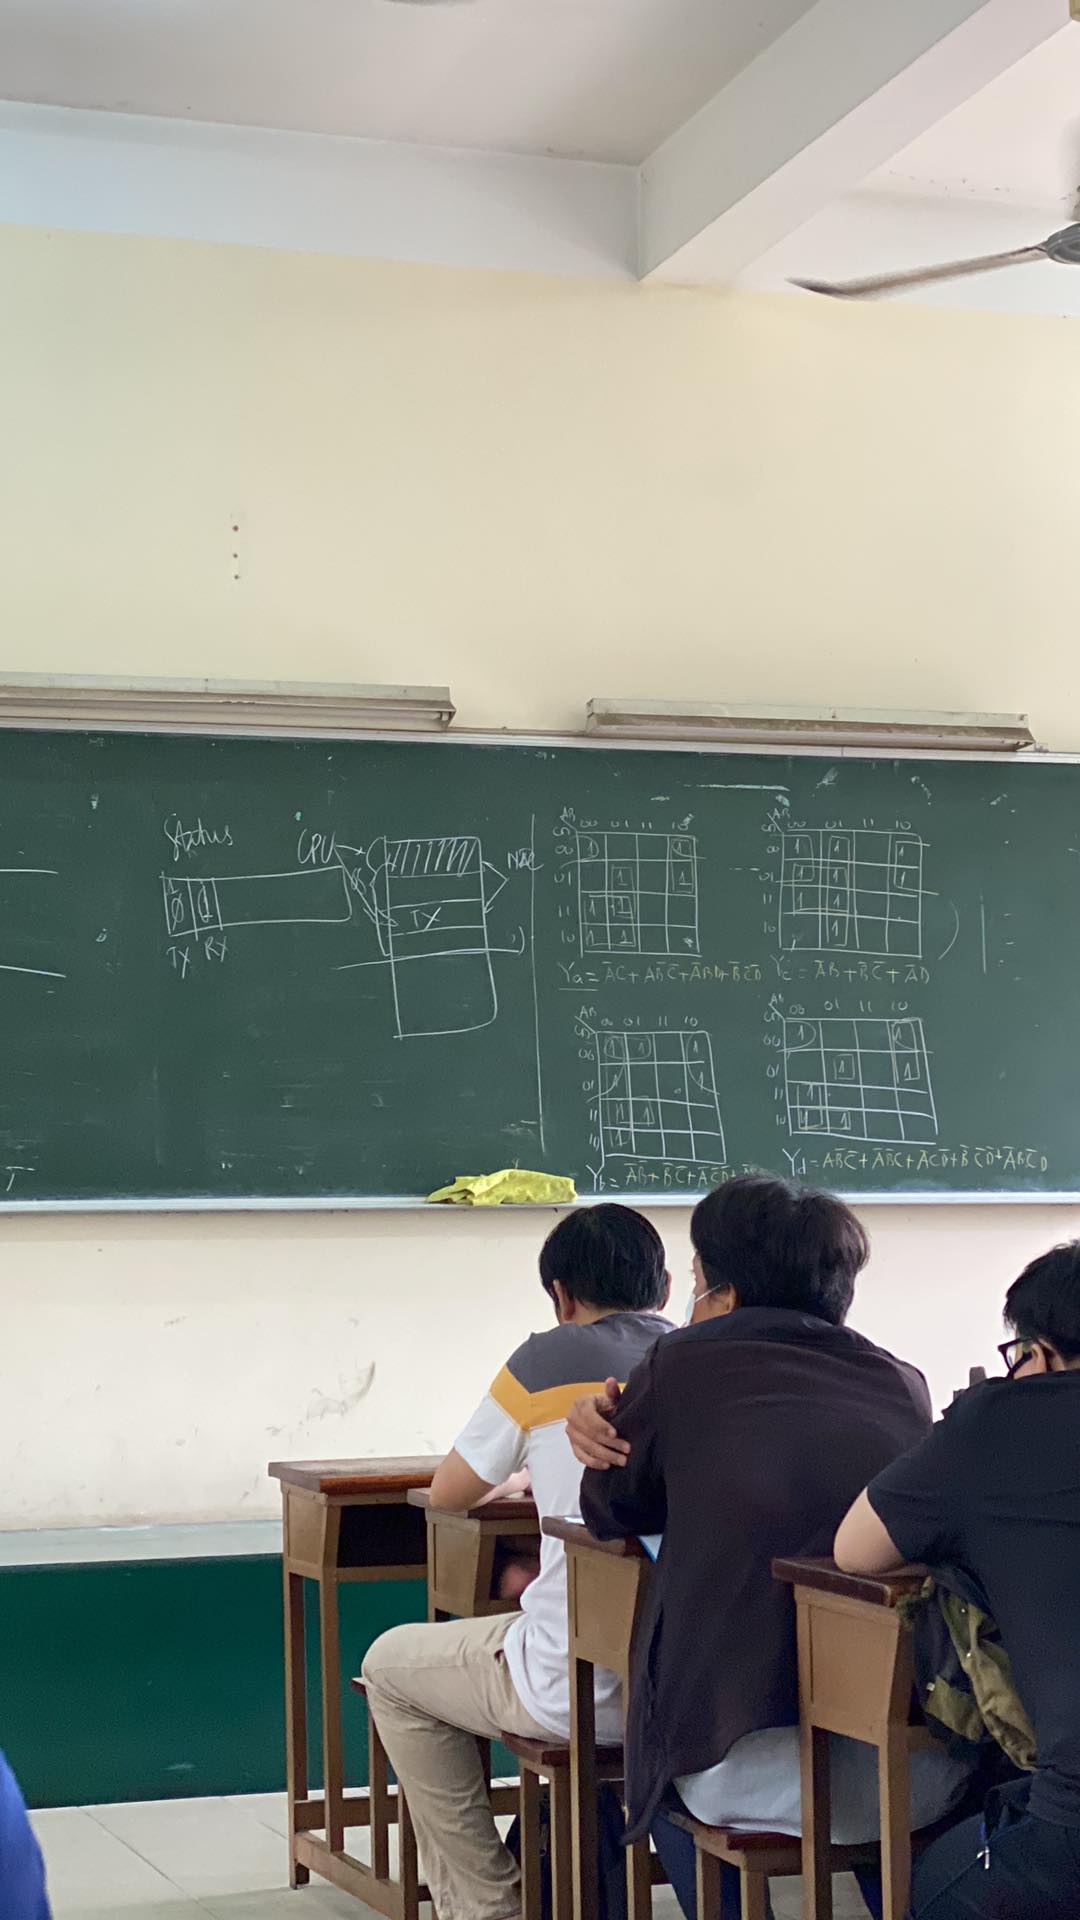 Status
0 1
TX RX
CPU
TX
AB 00 01 11 10
CD
00 1 1
01 1 1
11 1 1
10 1 1
Ya = A̅C + AB̅C̅ + A̅BD + B̅C̅D̅
AB 00 01 11 10
CD
00 1 1 1
01 1 1 1
11 1 1
10 1
Yc = A̅B + B̅C̅ + A̅D
AB 00 01 11 10
CD
00 1 1 1
01 1 1
11 1 1
10 1
Yb = A̅B̅ + B̅C̅ + A̅C̅D̅ +
AB 00 01 11 10
CD
00 1 1
01 1 1
11 1
10 1 1
Yd = AB̅C̅ + A̅B̅C + A̅CD̅ + B̅C̅D̅ + A̅BC̅D